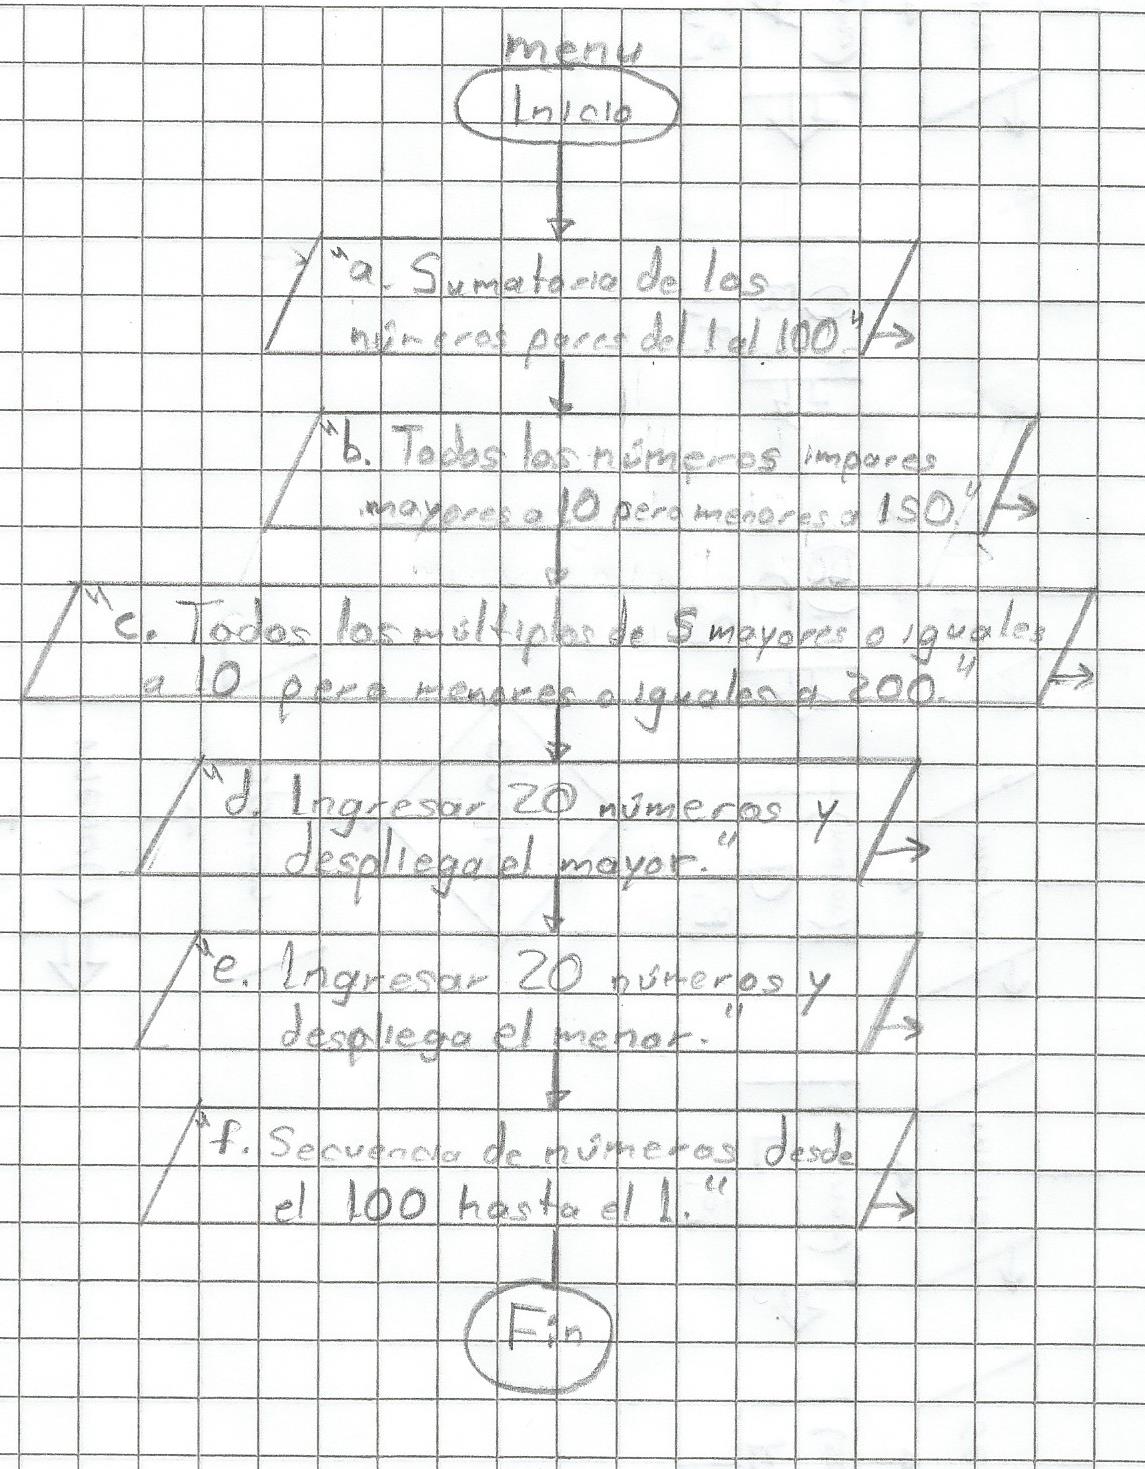 menu
Inicio
"a. Sumatoria de los
números pares del 1 al 100."
"b. Todos los números impares
mayores a 10 pero menores a 150."
"c. Todos los múltiplos de 5 mayores o iguales
a 10 pero menores o iguales a 200."
"d. Ingresar 20 números y
despliega el mayor."
"e. Ingresar 20 números y
despliega el menor."
"f. Secuencia de números desde
el 100 hasta el 1."
Fin